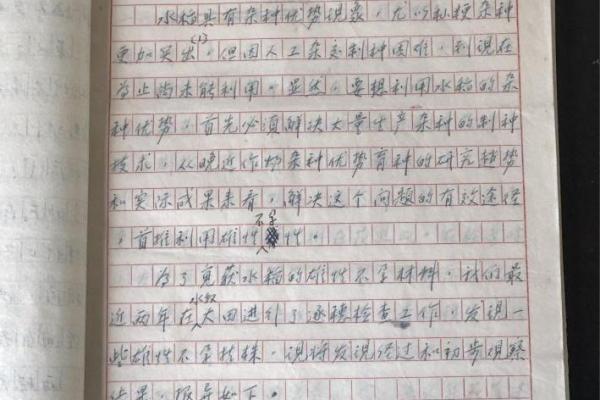 水稻具有杂种优势现象，尤以籼粳杂种
更加突出(1)，但因人工杂交制种困难，到现在
为止尚未能利用。显然，要想利用水稻的杂
种优势，首先必须解决大量生产杂种的制种
技术，从晚近作物杂种优势育种的研究趋势
和实际成果来看，解决这个问题的有效途径
，首推利用雄性不孕性。
为了寻获水稻的雄性不孕材料，我们最
近两年在水稻大田进行了逐穗检查工作，发现一
些雄性不孕植株，现将发现经过和初步观察
结果，报导如下。